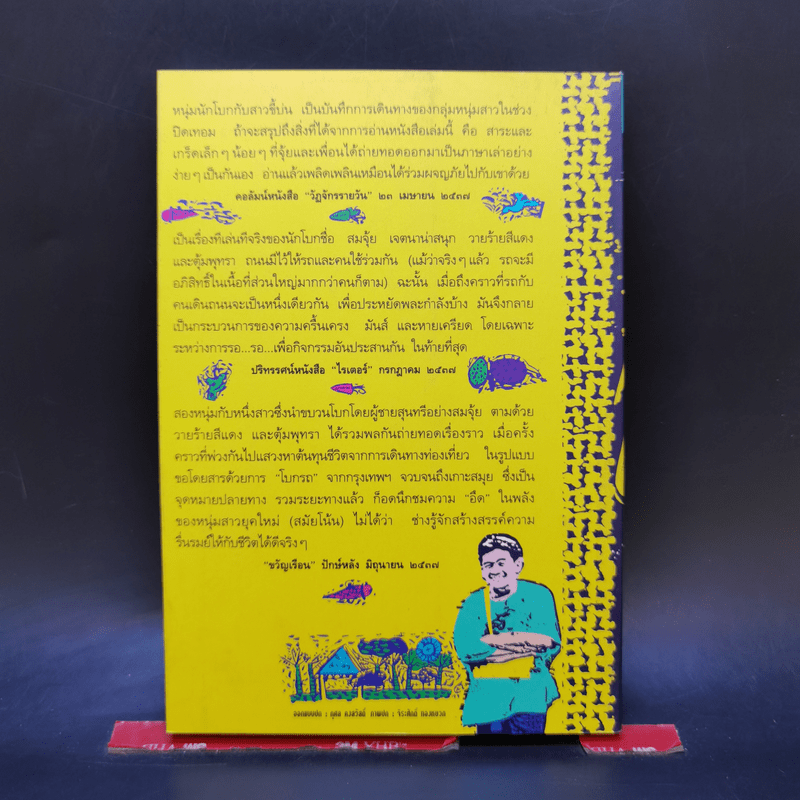 หนุ่มนักโบกกับสาวขี้บ่น เป็นบันทึกการเดินทางของกลุ่มหนุ่มสาวในช่วง
ปิดเทอม ถ้าจะสรุปถึงสิ่งที่ได้จากการอ่านหนังสือเล่มนี้ คือ สาระและ
เกร็ดเล็ก ๆ น้อย ๆ ที่จุ้ยและเพื่อนได้ถ่ายทอดออกมาเป็นภาษาเล่าอย่าง
ง่าย ๆ เป็นกันเอง อ่านแล้วเพลิดเพลินเหมือนได้ร่วมผจญภัยไปกับเขาด้วย
คอลัมน์หนังสือ "วัฏจักรรายวัน" ๒๓ เมษายน ๒๕๓๗
เป็นเรื่องทีเล่นทีจริงของนักโบกชื่อ สมจุ้ย เจตนาน่าสนุก วายร้ายสีแดง
และตุ้มพุทรา ถนนมีไว้ให้รถและคนใช้ร่วมกัน (แม้ว่าจริง ๆ แล้ว รถจะมี
อภิสิทธิ์ในเนื้อที่ส่วนใหญ่มากกว่าคนก็ตาม) ฉะนั้น เมื่อถึงคราวที่รถกับ
คนเดินถนนจะเป็นหนึ่งเดียวกัน เพื่อประหยัดพละกำลังบ้าง มันจึงกลาย
เป็นกระบวนการของความครื้นเครง มันส์ และหายเครียด โดยเฉพาะ
ระหว่างการรอ...รอ...เพื่อกิจกรรมอันประสานกัน ในท้ายที่สุด
ปริทรรศน์หนังสือ "ไรเตอร์" กรกฎาคม ๒๕๓๗
สองหนุ่มกับหนึ่งสาวซึ่งนำขบวนโบกโดยผู้ชายสุนทรีอย่างสมจุ้ย ตามด้วย
วายร้ายสีแดง และตุ้มพุทรา ได้รวมพลกันถ่ายทอดเรื่องราว เมื่อครั้ง
คราวที่พ่วงกันไปแสวงหาต้นทุนชีวิตจากการเดินทางท่องเที่ยว ในรูปแบบ
ขอโดยสารด้วยการ "โบกรถ" จากกรุงเทพฯ จวบจนถึงเกาะสมุย ซึ่งเป็น
จุดหมายปลายทาง รวมระยะทางแล้ว ก็อดนึกชมความ "อึด" ในพลัง
ของหนุ่มสาวยุคใหม่ (สมัยโน้น) ไม่ได้ว่า ช่างรู้จักสร้างสรรค์ความ
รื่นรมย์ให้กับชีวิตได้ดีจริง ๆ
"ขวัญเรือน" ปักษ์หลัง มิถุนายน ๒๕๓๗
ออกแบบปก : ภาพปก :